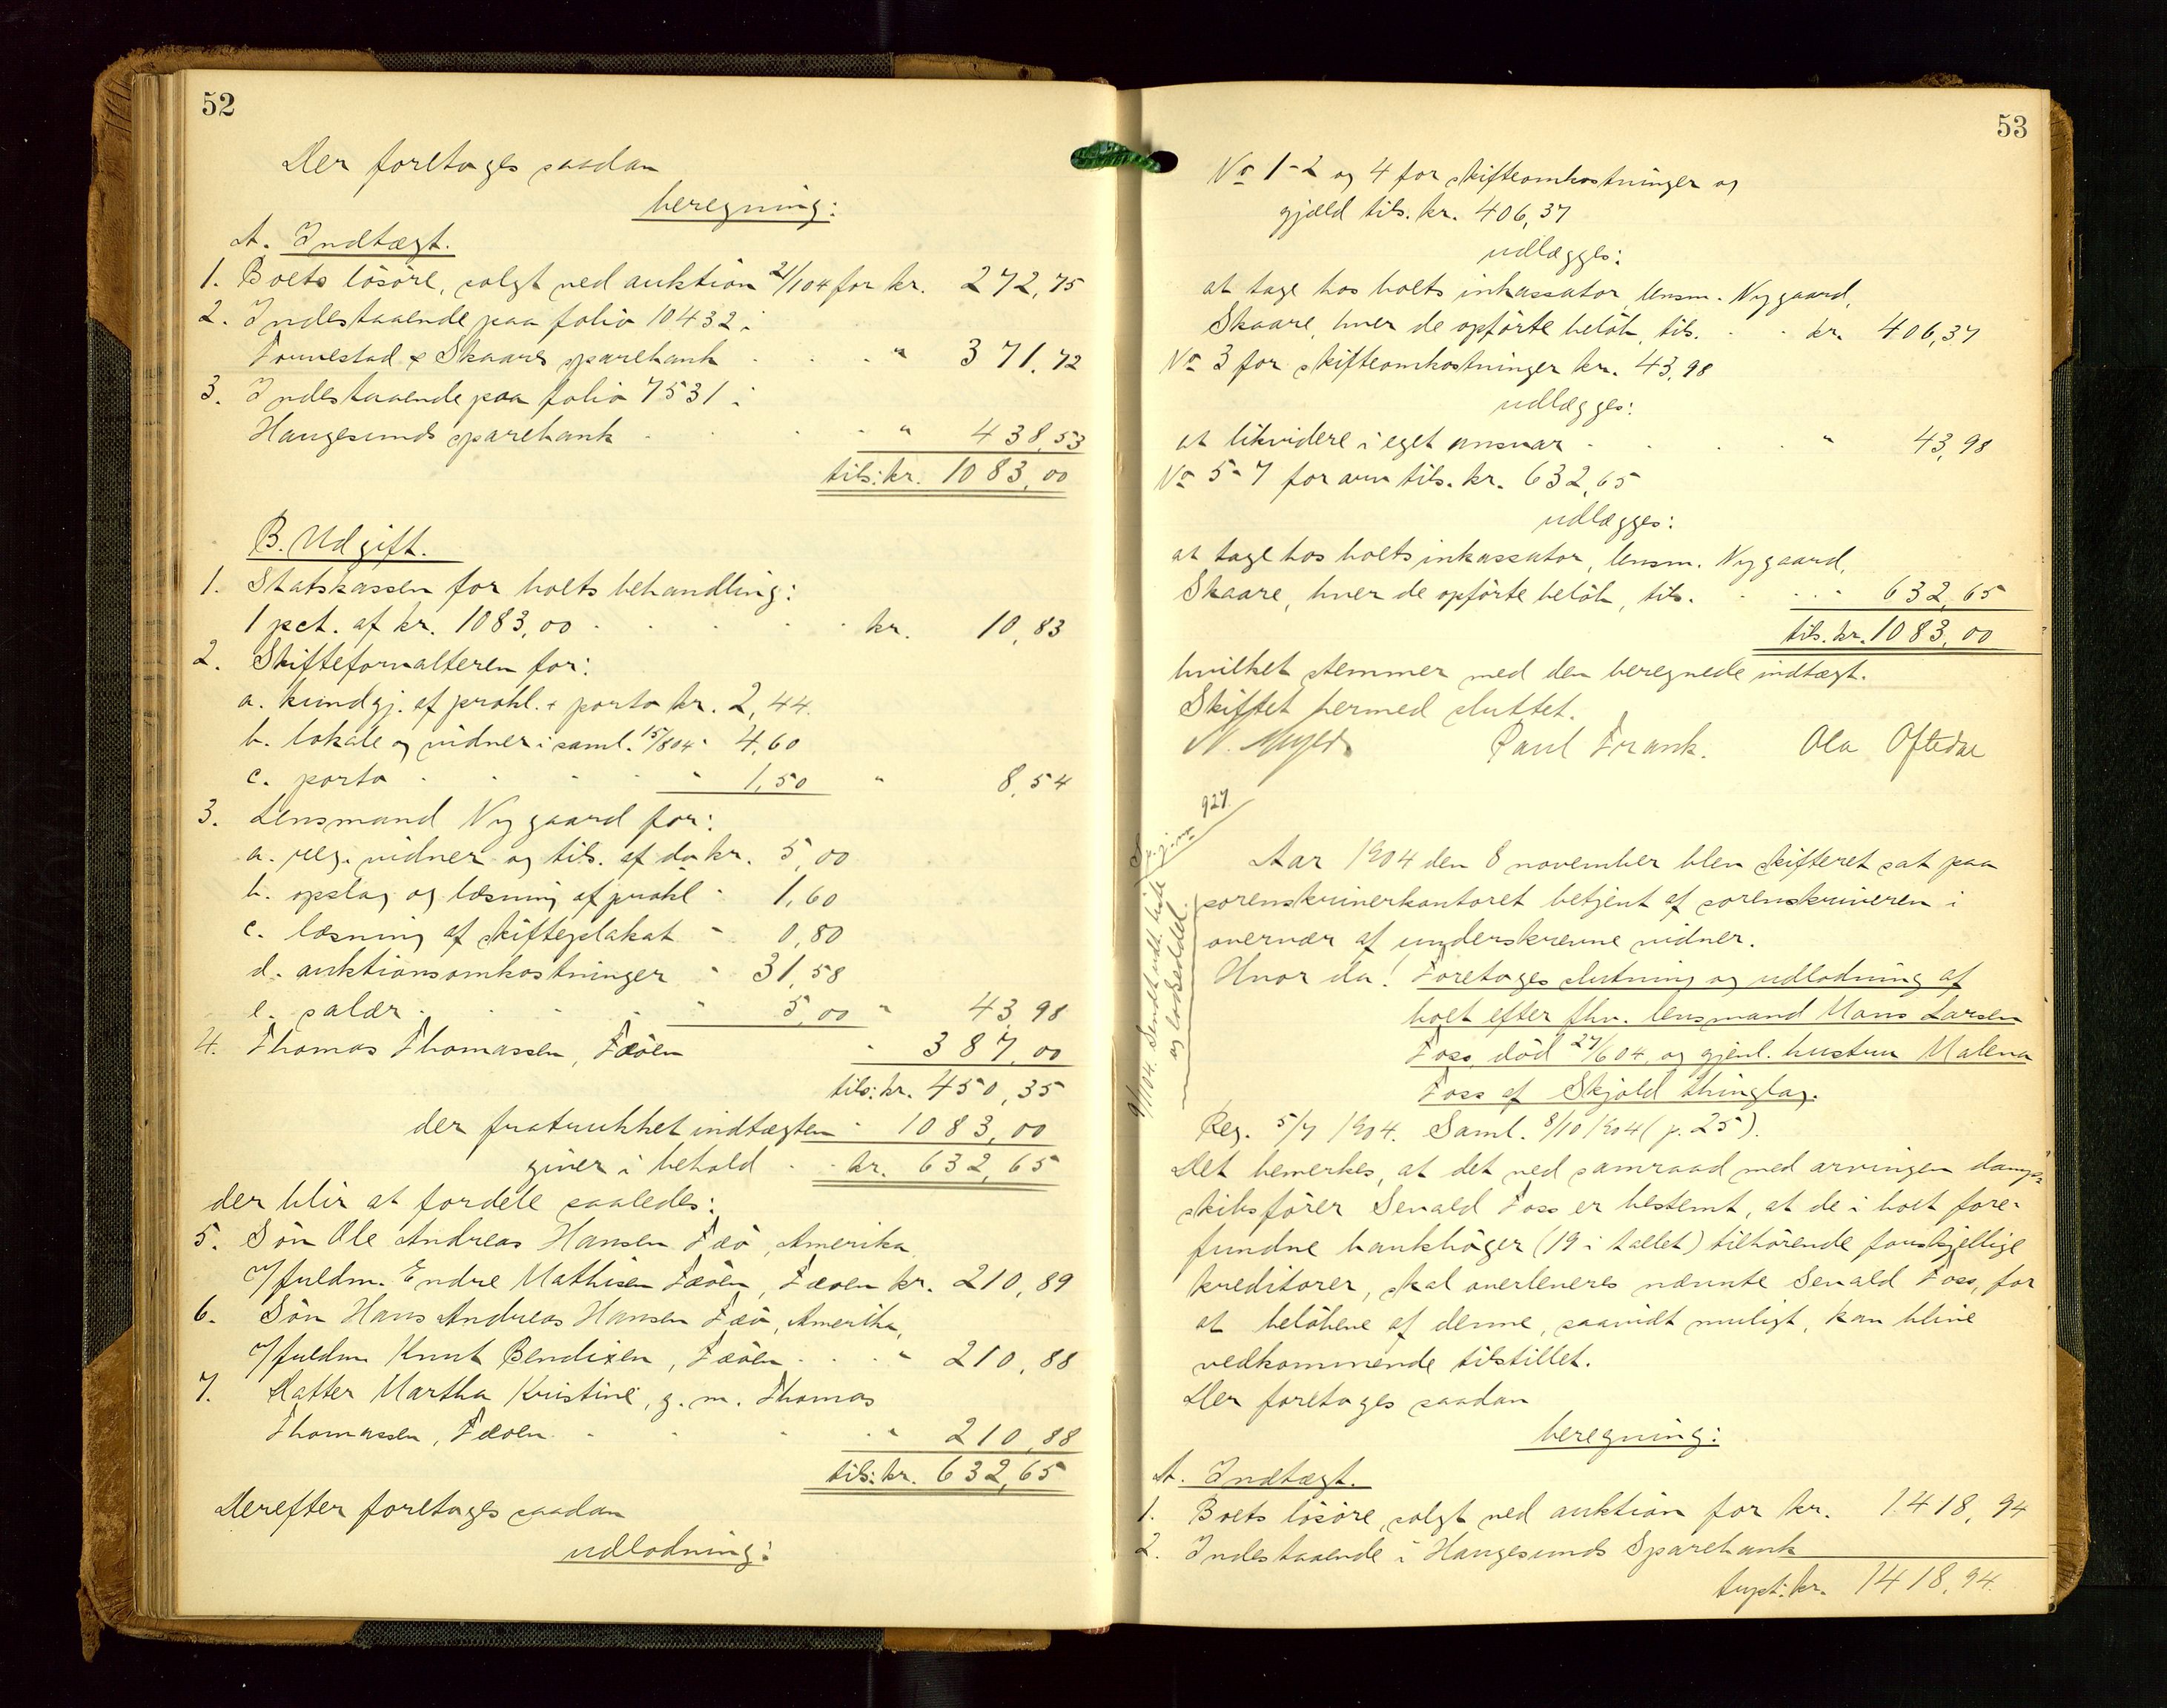 52
Der foretages saadan
beregning:
A. Indtægt.
1. Boets lösöre, solgt ved auktion 21/1 04 for kr. 272,75
2. Indestaaende paa folio 10432 i
Torvestad & Skaare sparebank " 371,72
3. Indestaaende paa folio 7531 i
Haugesunds sparebank " 438,53
tils: kr. 1083,00
B. Udgift.
1. Statskassen for boets behandling:
1 pct. af kr. 1083,00 kr. 10,83
2. Skifteforvalteren for:
a. kundgj. af prokl. + porto kr. 2,44
b. lokale og vidner i saml. 15/8 04 " 4,60
c. porto " 1,50 " 8,54
3. Lensmand Nygaard for:
a. reg. vidner og tils. af do kr. 5,00
b. opslag og læsning af prokl " 1,60
c. læsning af skifteplakat " 0,80
d. auktionsomkostninger " 31,58
e. salær " 5,00 " 43,98
4. Thomas Thomassen, Fæöen " 387,00
tils: kr. 450,35
der fratrukket indtægten " 1083,00
giver i behold kr. 632,65
der blir at fordele saaledes:
5. Sön Ole Andreas Hansen Fæö, Amerika
v/fuldm. Endre Mathisen Fæöen, Fæoen kr. 210,89
6. Sön Hans Andreas Hansen Fæö, Amerika,
v/fuldm Knut Bendixen, Fæöen " 210,88
7. Datter Martha Kristine, g. m. Thomas
Thomassen, Fæoen " 210,88
tils: kr. 632,65
Derefter foretages saadan
udlodning:
53
No 1-2 og 4 for skifteomkostninger og
gjæld tils. kr. 406,37
udlægges:
at tage hos boets inkassator, lensm. Nygaard,
Skaare, hver de opförte belöb, tils. kr. 406,37
No 3 for skifteomkostninger kr. 43,98
udlægges:
at likvidere i eget ansvar " 43,98
No 5-7 for arv tils. kr. 632,65
udlægges:
at tage hos boets inkassator, lensm. Nygaard,
Skaare, hver de opförte belöb, tils. " 632,65
tils. kr. 1083,00
hvilket stemmer med den beregnede indtægt.
Skiftet hermed sluttet.
Paul Frank. Ola Oftedal
927.
9/11 04. Sendt udt. liste
og lodseddel.
Aar 1904 den 8 november blev skifteret sat paa
sorenskriverkontoret betjent af sorenskriveren i
overvær af underskrevne vidner.
Hvor da! Foretages slutning og udlodning af
boet efter fhv. lensmand Hans Larsen
Foss, död 27/6 04, og gjenl. hustru Malena
Foss af Skjold thinglag.
Reg. 5/7 1904. Saml. 8/10 1904 (p. 25).
Det bemerkes, at det ved samraad med arvingen damp-
skibsförer Sevald Foss er bestemt, at de i boet fore-
fundne bankböger (19 i tallet) tilhörende forskjellige
kreditorer, skal overleveres nævnte Sevald Foss, for
at belöbene af denne, saavidt muligt, kan blive
vedkommende tilstillet.
Der foretages saadan
beregning:
A. Indtægt.
1. Boets lösöre, solgt ved auktion for kr. 1418,94
2. Indestaaende i Haugesunds Sparebank
trspt: kr. 1418,94.